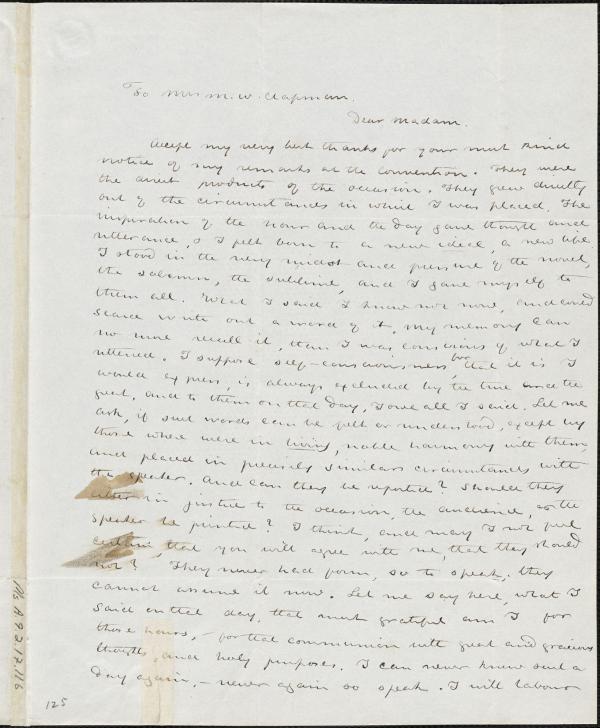 To Mrs M. W. Chapman.
Dear Madam.
Accept my very best thanks for your most kind
notice of my remarks at the convention. They were
the direct products of the occasion. They grew directly
out of the circumstances in which I was placed. The
inspiration of the hour and the day gave thought and
utterance, & I felt born to a new ideal, a new life.
I stood in the very midst and pressure of the novel,
the solemn, the sublime, and I gave myself to
them all. What I said I know not now, and could
scarce write out a word of it, my memory can
no more recall it, than I was conscious of what I
uttered. I suppose self-consciousness, that it is I
would express, is always excluded by the true and the
great, and to them on that day, I owe all I said. Let me
ask, if such words can be felt or understood, except by
those who were in living, noble harmony with them,
and placed in precisely similar circumstances with
the speaker. And can they be reported? Should they
in justice to the occasion, the audience, or the
speaker be printed? I think, and may I not feel
certain that you will agree with me, that they should
not? They never had form, so to speak, they
cannot assume it now. Let me say here, what I
said on that day, that most grateful am I for
those hours, – for that communion with great and gracious
thoughts, and holy purposes. I can never know such a
day again, – never again so speak. I will labour
125
Ms A.9.2.17.116